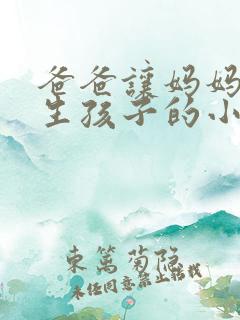 爸爸讓妈妈
生孩子的小
東篱菊隐
未经同意禁止转载